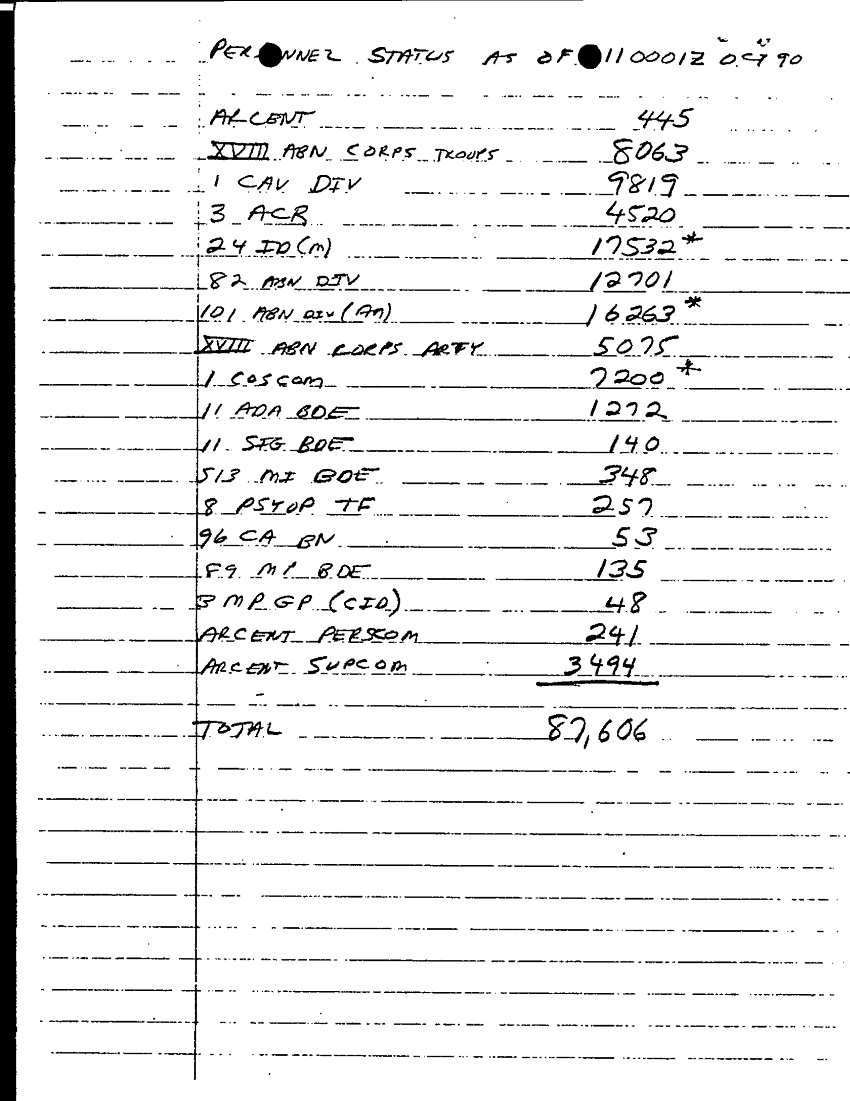 PERSONNEL STATUS AS OF 110001Z OCT 90
ARCENT 445
XVIII ABN CORPS TROOPS 8063
1 CAV DIV 9819
3 ACR 4520
24 ID(M) 17532*
82 ABN DIV 12701
101 ABN DIV (AA) 16263*
XVIII ABN CORPS ARTY 5075
1 COSCOM 7200*
11 ADA BDE 1272
11 SIG BDE 140
513 MI BDE 348
8 PSYOP TF 257
96 CA BN 53
89 MP BDE 135
3 MP GP (CID) 48
ARCENT PERSCOM 241
ARCENT SUPCOM 3494
TOTAL 87,606